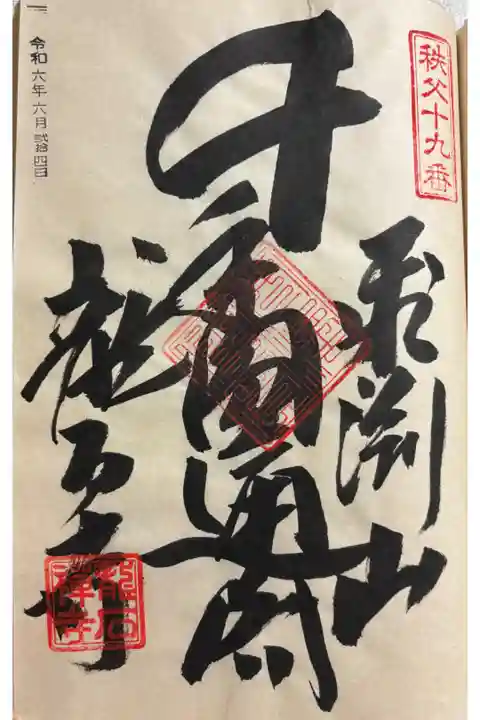 秩父十九番
飛淵山
千手圓通閣
龍石寺
龍石
禅寺
令和六年六月弐拾四日